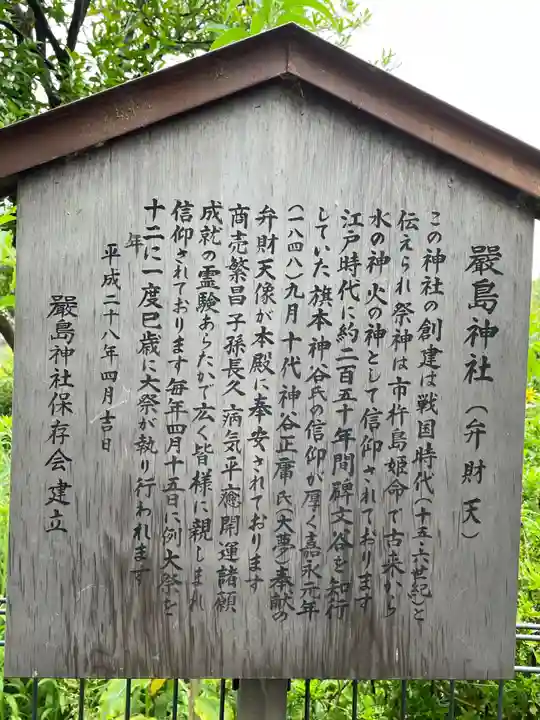 嚴島神社（弁財天）
この神社の創建は戦国時代（十五、六世紀）と
伝えられ祭神は市杵島姫命で古来から
水の神、火の神として信仰されております
江戸時代に約二百五十年間碑文谷を知行
していた旗本神谷氏の信仰が厚く嘉永元年
（一八四八）九月十代神谷正庸氏（大夢）奉献の
弁財天像が本殿に奉安されております
商売繁昌子孫長久病気平癒開運諸願
成就の霊験あらたかで広く皆様に親しまれ
信仰されております毎年四月十五日に例大祭を
十二年に一度巳歳に大祭が執り行われます
平成二十八年四月吉日
嚴島神社保存会建立